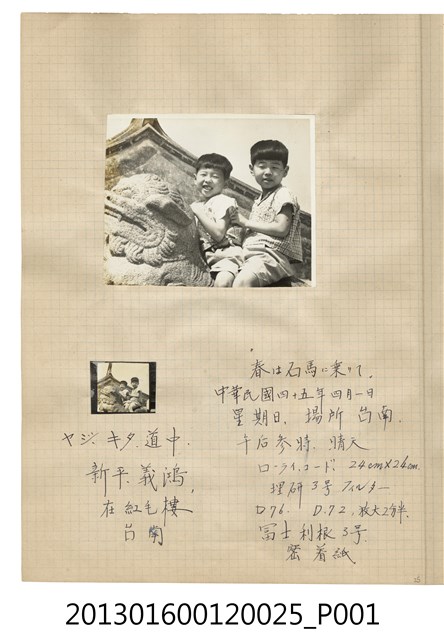 春は石馬に乗りて.
中華民國四十五年四月一日
星期日. 場所 台南.
午后参時. 晴天
ローライコード: 24cm×24cm.
理研3号 フィルター
D76. D.72. 放大2分半.
冨士利根3号.
密着紙
ヤジ. キタ. 道中.
新平 義鴻,
在紅毛樓
台南
201301600120025_P001